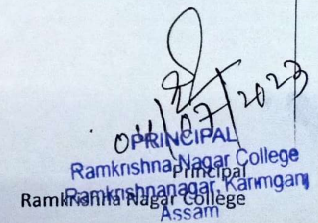 04/07/2023
PRINCIPAL
Ramkrishna Nagar College
Ramkrishnanagar, Karimganj
Assam
Principal
Ramkrishna Nagar College